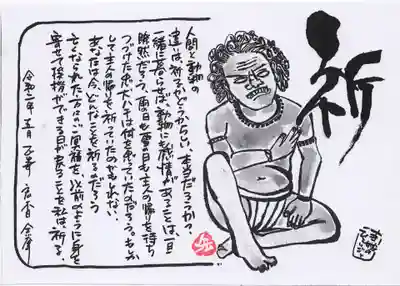 祈
人間と動物の
違いは祈るかどうからしい。本当だろうか?
一緒に暮らせば、動物にも感情があることは一目
瞭然だろう。雨の日も雪の日も、主人の帰りを待ち
つづけた忠犬ハチは何を思っていたのだろう。もしか
して主人の帰りを祈っていたのかもしれない。
あなたは今、どんなことを祈るだろう
亡くなられた方々のご冥福を、以前のように身を
寄せて挨拶ができる日が戻ることを私は、祈る。
令和二年 五月